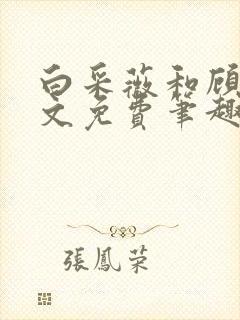 白采薇和顾
文免费笔趣
張鳳荣